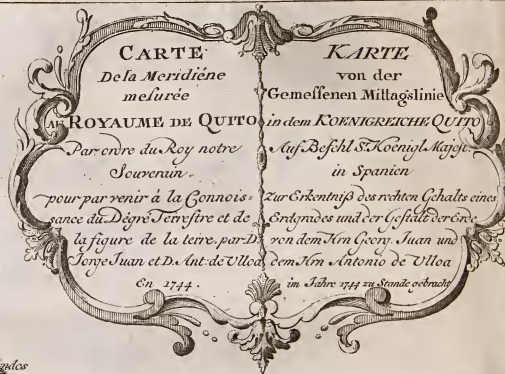 CARTE
De la Meridiéne
mesurée
AU ROYAUME DE QUITO
Par ordre du Roy notre
Souverain.
pour parvenir á la Connois=
sance du Dègré Terrestre et de
la figure de la terre. par D.
Jorge Juan et D. Ant: de Ulloa
En 1744.
KARTE
von der
Gemessenen Mittagslinie
in dem KOENIGREICHE QUITO
Auf Befehl Sr. Koenigl Majest.
in Spanien
zur Erkentniß des rechten Gehalts eines
Erdgrades und der Gestalt der Erde
von dem Hrn Georg. Juan und
dem Hrn Antonio de Ulloa
im Jahre 1744 zu Stande gebracht